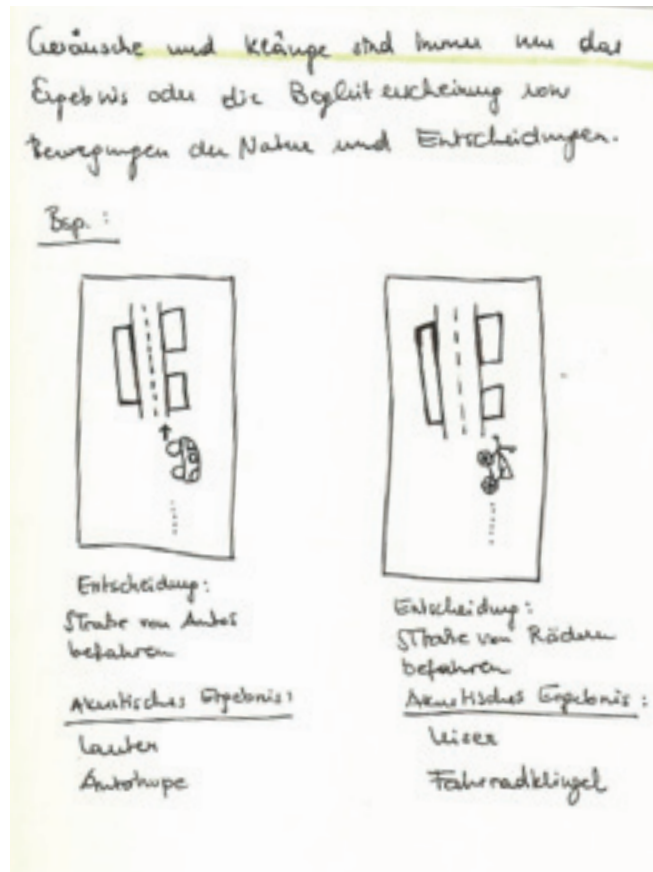 Geräusche und Klänge sind immer nur das
Ergebnis oder die Begleiterscheinung von
Bewegungen der Natur und Entscheidungen.
Bsp.:
Entscheidung:
Straße von Autos
befahren
Akustisches Ergebnis:
lauter
Autohupe
Entscheidung:
Straße von Rädern
befahren
Akustisches Ergebnis:
leiser
Fahrradklingel